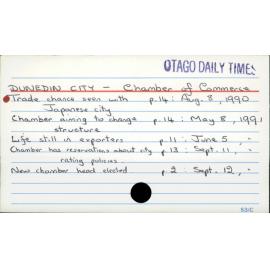 OTAGO DAILY TIMES
DUNEDIN CITY - Chamber of Commerce
Trade chance seen with p.14: Aug. 8, 1990
Japanese city
Chamber aiming to change p.14: May 8, 1991
structure
Life still in exporters p.11: June 5, "
Chamber has reservations about city p.13: Sept. 11, "
rating policies
New chamber head elected p.2: Sept. 12, "
53IC